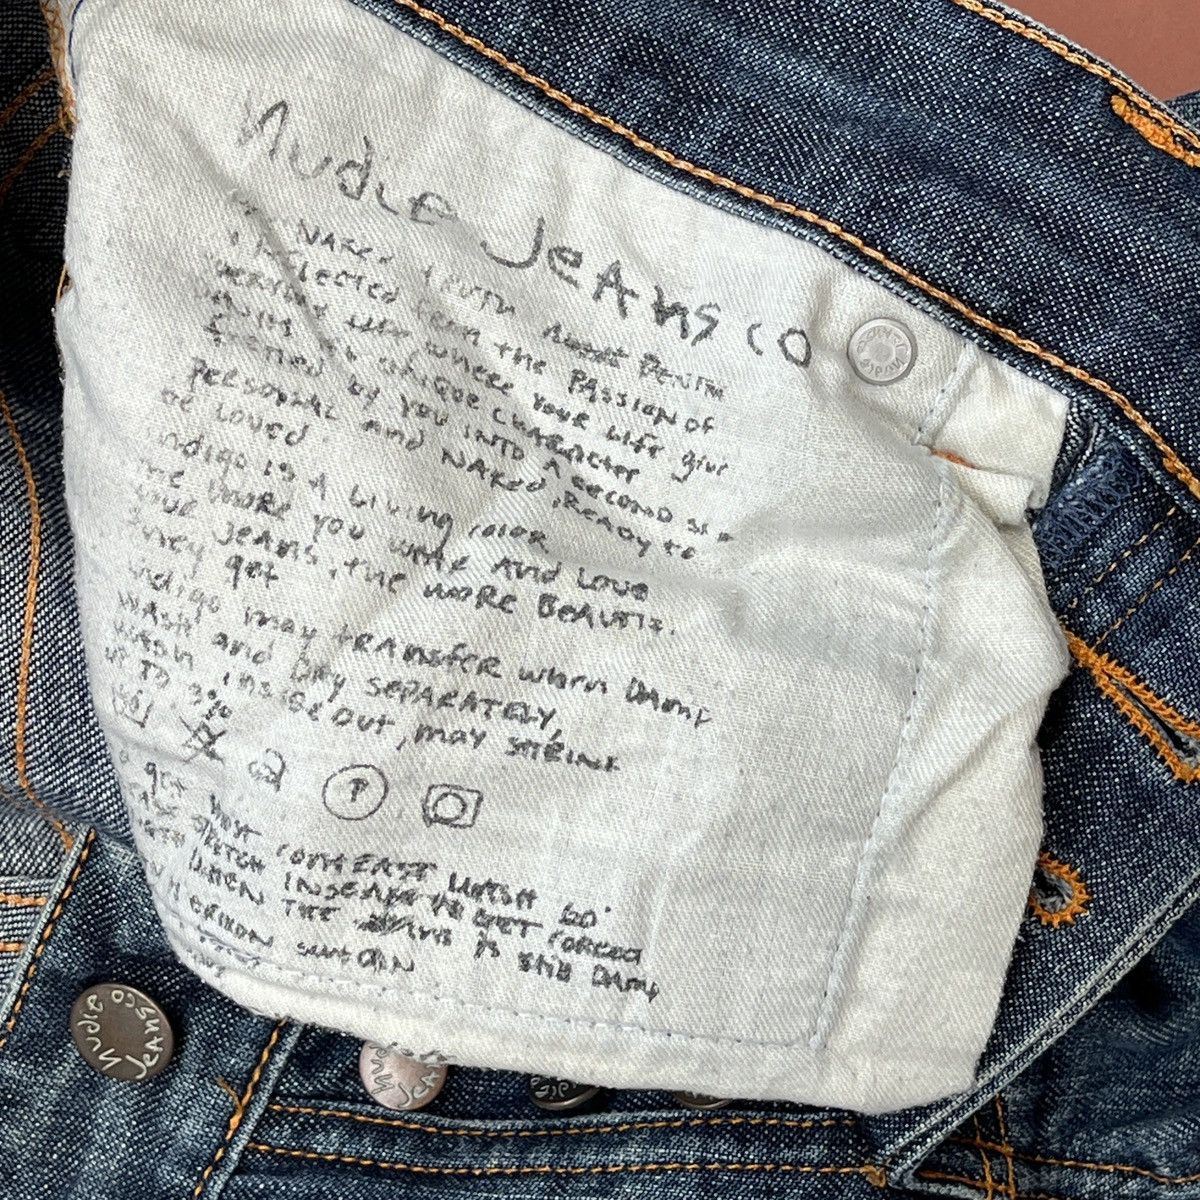 nudie Jeans co
THE NAKED TRUTH ABOUT DENIM
I REFLECTED FROM the PASSION OF
WEAR where YOUR LIFE give
UNIQUE CHARACTER
FORMED BY YOU INTO A SECOND SKIN
PERSONAL and NAKED, READY to
BE LOVED.
indigo is A Living color
the more you WEAR AND LOVE
your JEANS, the MORE BEAUTIFUL
they get
indigo may TRANSFER when DAMP
WASH and DRY SEPARATELY,
WASH inside OUT, may SHRINK
UP TO 3%
P
to get MOST CONTRAST WASH 60°
STRETCH INSEAM TO GET FORCED
LENGTH WHEN THE IS STILL DAMP
nudie Jeans co
nudie Jeans co
nudie Jeans